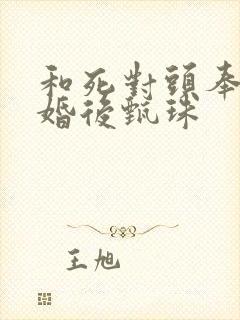 和死對頭奉
婚後甄珠
王旭